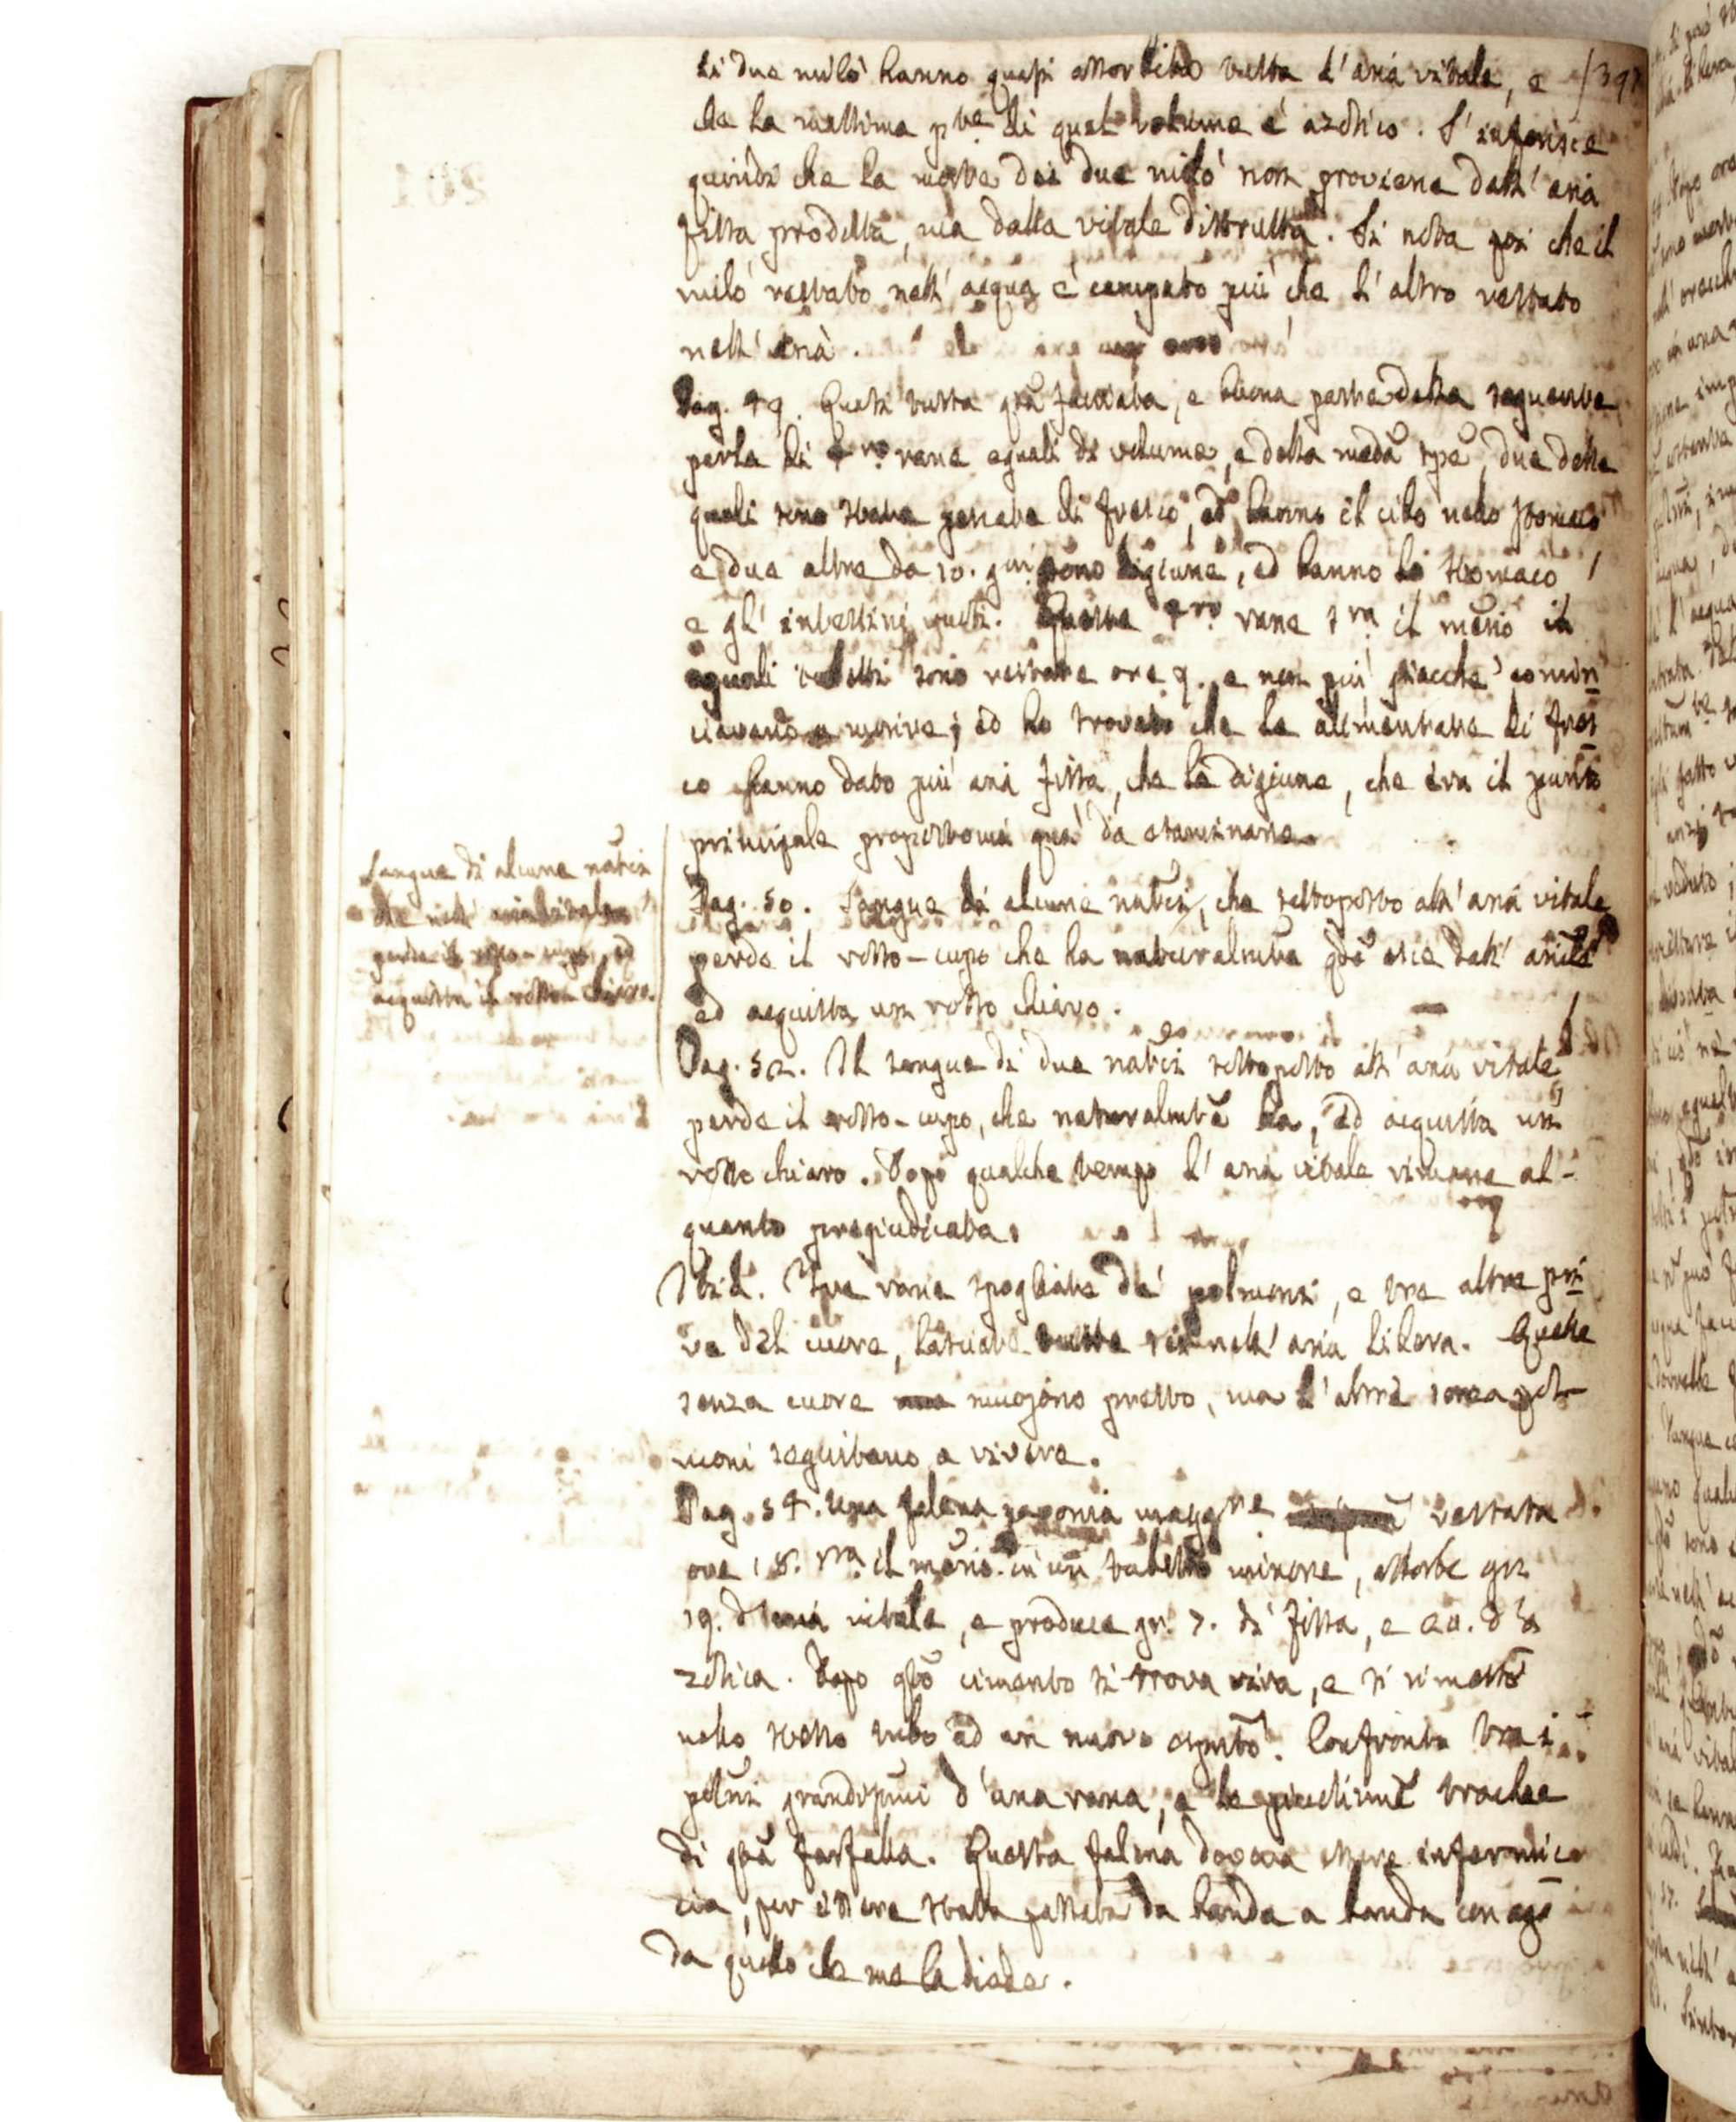 li due milò hanno quasi assorbito tutta l'aria vitale, e
che la massima pte di quel volume è azotico. S'inferisce
quindi che la morte dei due milò non proviene dall'aria
fissa prodotta, ma dalla vitale distrutta. Si nota poi che il
milò restato nell'acqua è campato più che l'altro restato
nell'aria.
Pag. 49. Quasi tutta qta facciata, e buona parte della seguente
parla di 4ro rane eguali di volume, e della meda spe, due delle
quali sono state pasciate di fresco, ed hanno il cibo nello stomaco
e due altre da 10. gni sono digiune, ed hanno lo stomaco
e gl'intestini vuoti. Queste 4ro rane sra il merio in
eguali tubetti sono restate ore 9. e non più giacchè comin
ciavano a morire; ed ho trovato che le alimentate di fres
co hanno dato più aria fissa, che le digiune, che era il punto
principale propostomi qui da esaminare.
Sangue di alcune natici
che nell' aria vitale
perde il rosso-cupo, ed
acquista il rosso chiaro.
Pag. 50. Sangue di alcune natici, che sottoposto all'aria vitale
perde il rosso-cupo che ha naturalmte qdo esce dall' anile
ed acquista un rosso chiaro.
Pag. 52. Il sangue di due natici sottoposto all'aria vitale
perde il rosso-cupo, che naturalmte ha, ed acquista un
rosso chiaro. Dopo qualche tempo l'aria vitale rimane al-
quanto pregiudicata.
Ibid. Tre rane spogliate de' polmoni, e tre altre pri
ve del cuore, lasciate tutte sei nell'aria libera. Quelle
senza cuore muojono presto, ma l'altre senza pol-
moni seguitano a vivere.
Pag. 54. Una falena pavonia maggre restata
ore 18. sra il merio in un tubetto minore, assorbe gr.
19. d'aria vitale, e produce gr. 7. di fissa, e 20. d'a
zotica. Dopo qto cimento si trova viva, e si rimette
nello stesso tubo ad un nuovo espmto. Confronta tra i
polmi grandissimi d'una rana, e le piccolissime trachee
di qta farfalla. Questa falena doveva essere infermic
cia, per essere stata passata da banda a banda con ago
da quello che me la diede.